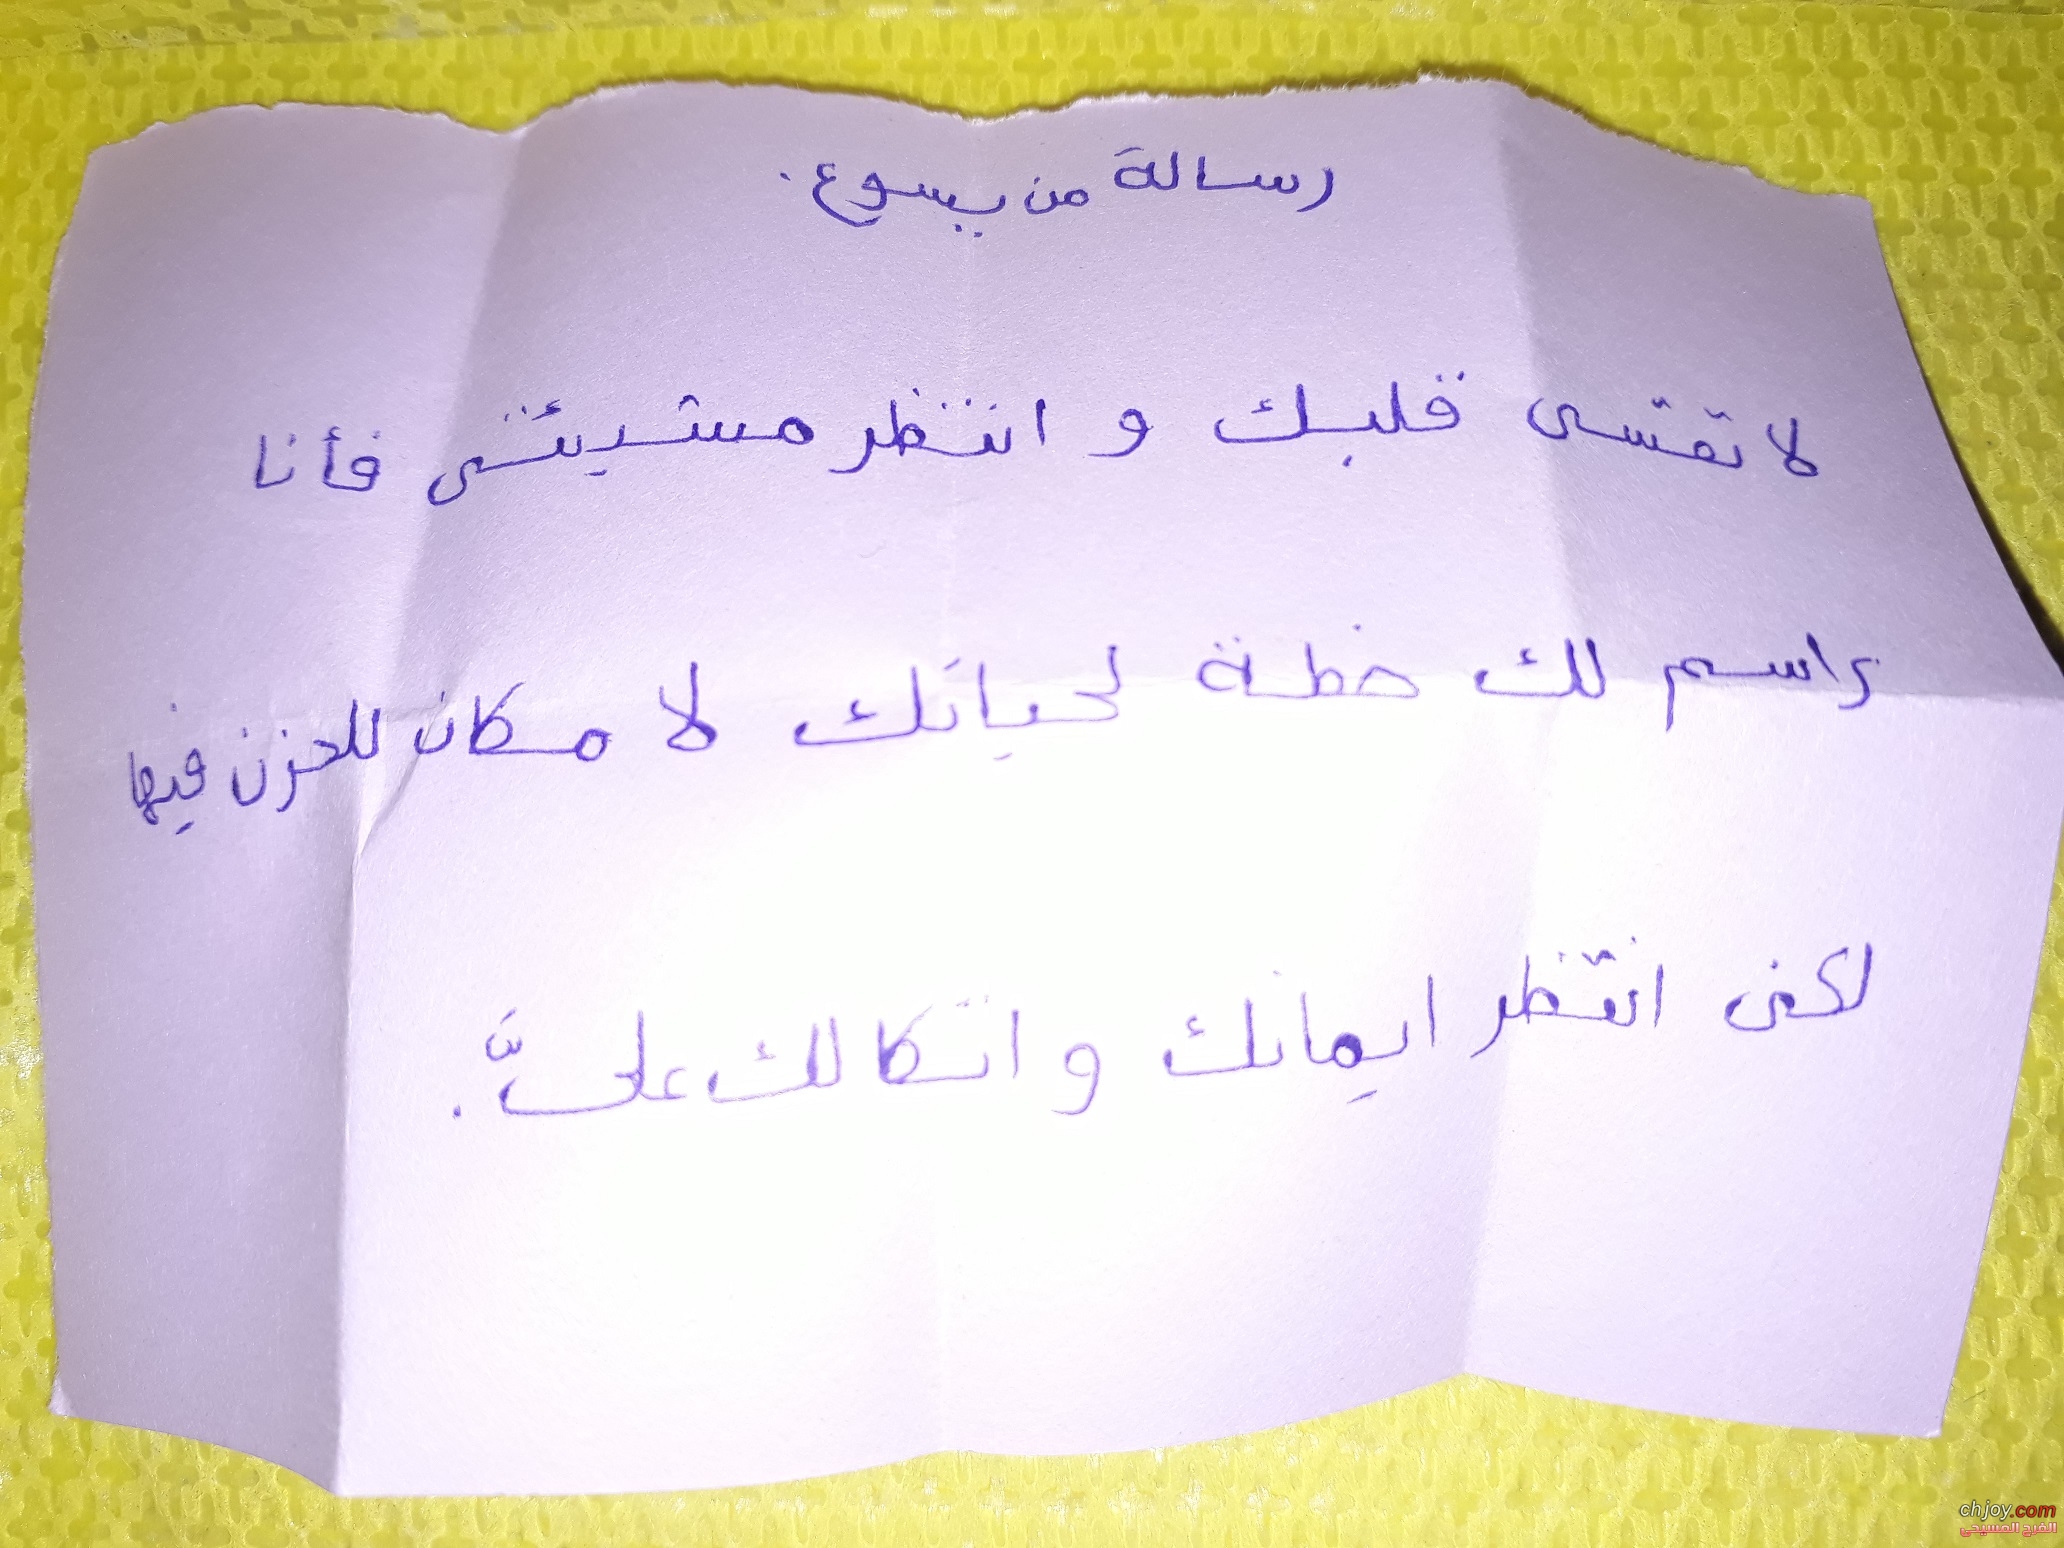 رسالة من يسوع.
لا تقسى قلبك و انتظر مشيئتى فأنا
راسم لك خطة لحياتك لا مكان للحزن فيها
لكنى انتظر ايمانك و اتكالك علىَّ.
chjoy.com
الفرح المسيحى